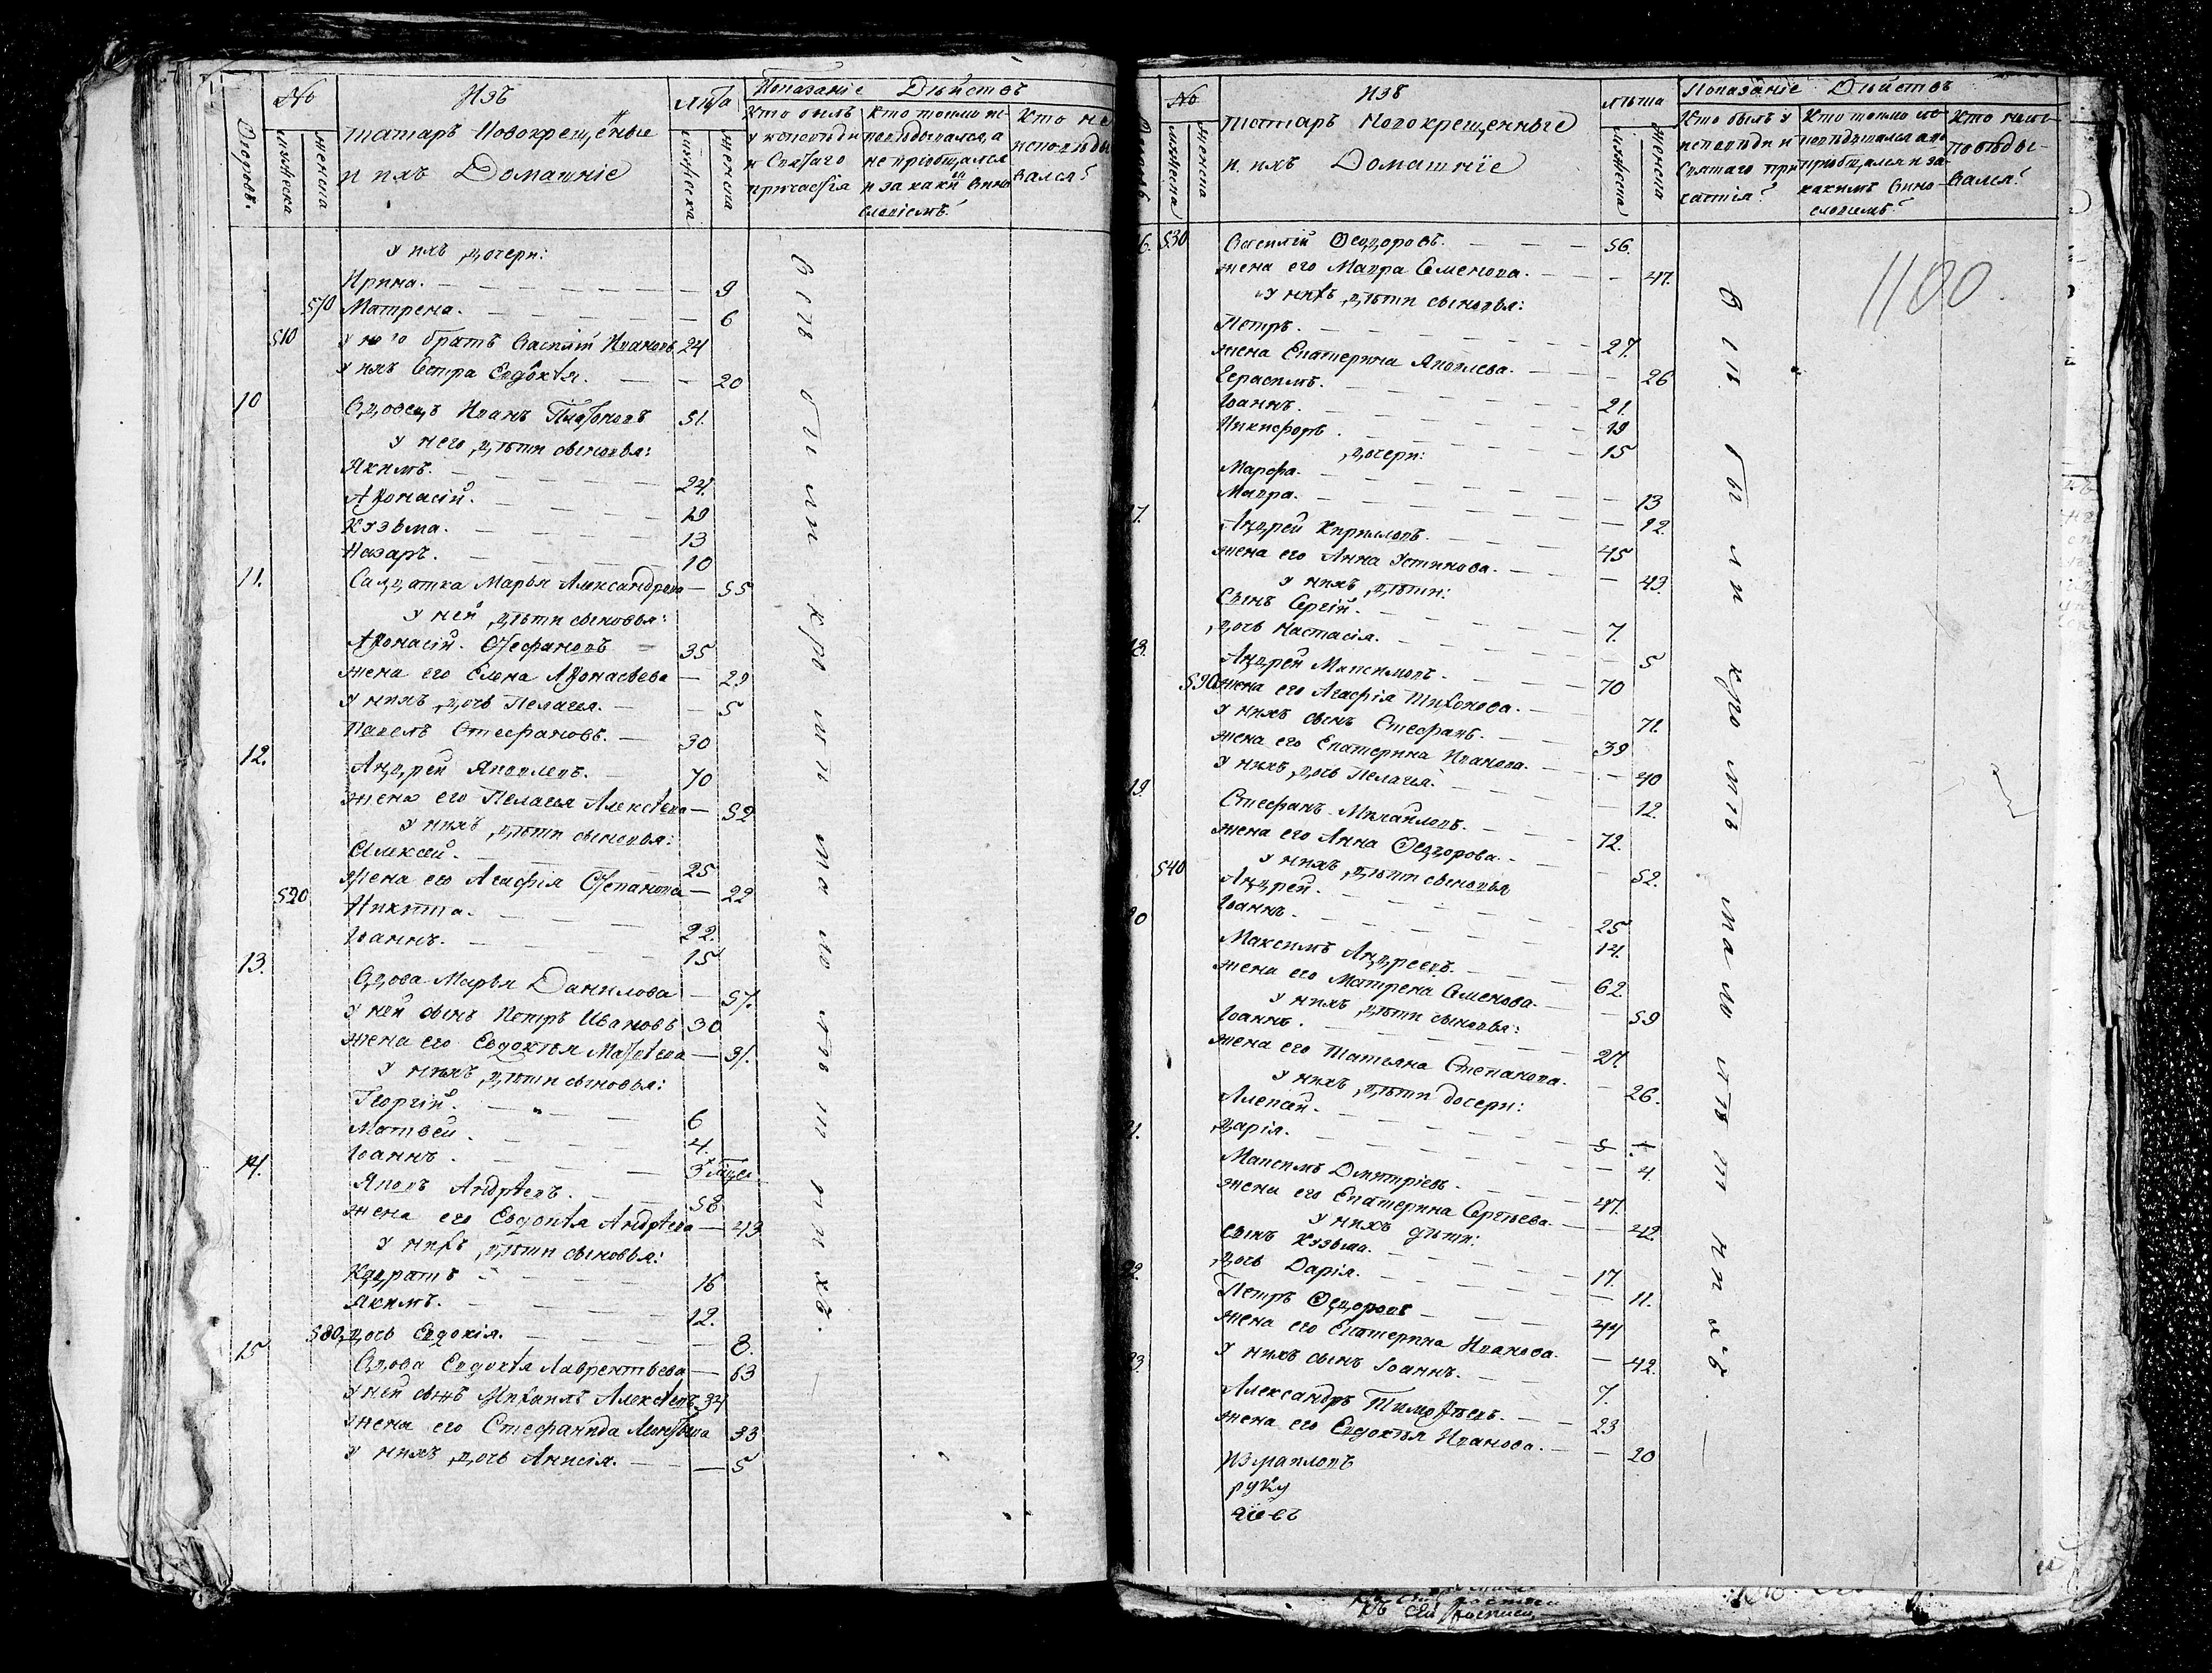 № Изъ Лѣта Показаніе Дѣйствъ
Дворовъ. мужеска женска татаръ Новокрещеные мужеска женска Кто былъ Кто токмо ис Кто не
и ихъ Домашніе у исповѣди поведывался, а исповѣды
и Святаго не приобщался вался?
причастія и за какимъ вино
словіемъ?
Были при томъ
у ихъ дочери:
Ирина. — 9
570 Матрена. — 6
510 у него братъ Василій Ивановъ 24
у ихъ сестра Евдокѣя. — 20
10 Вдовецъ Иванъ Платоновъ 51.
у него дѣти сыновья:
Якимъ. — 24.
Афонасій. — 19
Кузьма. — 13
Назаръ. — 10
11. Салдатка Марья Александрова — 55
у ней дѣти сыновья:
Афонасій Стефановъ — 35
жена его Елена Афонасьева — 29
у нихъ дочь Пелагея. — 5
Павелъ Стефановъ. — 30
12. Андрей Яковлевъ. — 70
жена его Пелагея Алексѣева — 52
у нихъ дѣти сыновья:
Алексѣй. — 25
жена его Агафія Степанова — 22
520 Никита. — 22.
Іоаннъ. — 15
13. Вдова Марья Данилова — 57.
у ней сынъ Петръ Ивановъ 30
жена его Евдокѣя Матвѣева — 31.
у нихъ дѣти сыновья:
Георгій. — 6
Матвей. — 4.
Іоаннъ. — 3
14. Яковъ Андрѣевъ. — 58
жена его Евдокѣя Андрѣева — 43
у нихъ дѣти сыновья:
Кндратъ — 16
Якимъ. — 12.
580 дочь Евдокія. — 8.
15 Вдова Евдокѣя Лаврентьева — 63
у ней сынъ Михаилъ Алексѣевъ 34
жена его Стефанида 33
у нихъ дочь Анисія. — 5
№ Изъ лѣта Показаніе Дѣйствъ
мужеска женска татаръ Новокрещенные мужеска женска Кто былъ у Кто токмо ис Кто неис
и ихъ Домашніе исповѣди и повѣдывался а не повѣды-
Святаго при приобщался и за вался?
частія? какимъ вино-
словіемъ?
1100.
530 Василій Ѳедоровъ. — 56.
жена его Мавра Семенова. — 47.
у нихъ дѣти сыновья:
Петръ. — 27.
жена Екатерина Яковлева. — 26
Герасимъ. — 21.
Іоаннъ. — 19
Никифоръ. — 15
дочери:
Марфа. — 13
Мавра. — 12.
17. Андрей Кириловъ. — 45
жена его Анна Устинова. — 43.
у нихъ дѣти:
Сынъ Сергій. — 7.
дочь Настасія. — 5
18. Андрей Максимовъ. — 70
590 жена его Агафія Тихонова. — 71.
у нихъ сынъ Стефанъ. — 39
жена его Екатерина Иванова. — 40
у нихъ дочь Пелагія. — 12.
19. Стефанъ Михайловъ. — 72.
жена его Анна Ѳедорова. — 52.
у нихъ дѣти сыновья
540 Андрей. — 25
Іоаннъ. — 14.
20 Максимъ Андреевъ. — 62.
жена его Матрена Семенова. — 59
у нихъ дѣти сыновья:
Іоаннъ. — 27.
жена его Татьяна Степанова. — 26.
у нихъ дѣти дочери:
Алексѣй. — 5
Дарія. — 4
21. Максимъ Дмитріевъ. — 47.
жена его Екатерина Сергѣева. — 42.
у нихъ дѣти:
Сынъ Кузьма. — 17.
дочь Дарія. — 11.
22. Петръ Ѳедоровъ — 44
жена его Екатерина Иванова. — 42.
у нихъ сынъ Іоаннъ. — 7.
23. Александръ Тимофѣевъ. — 23
жена его Евдокѣя Иванова. — 20
Измаиловъ
руку